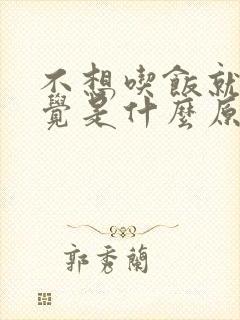 不想喫飯就
覺是什麼原
郭秀蘭